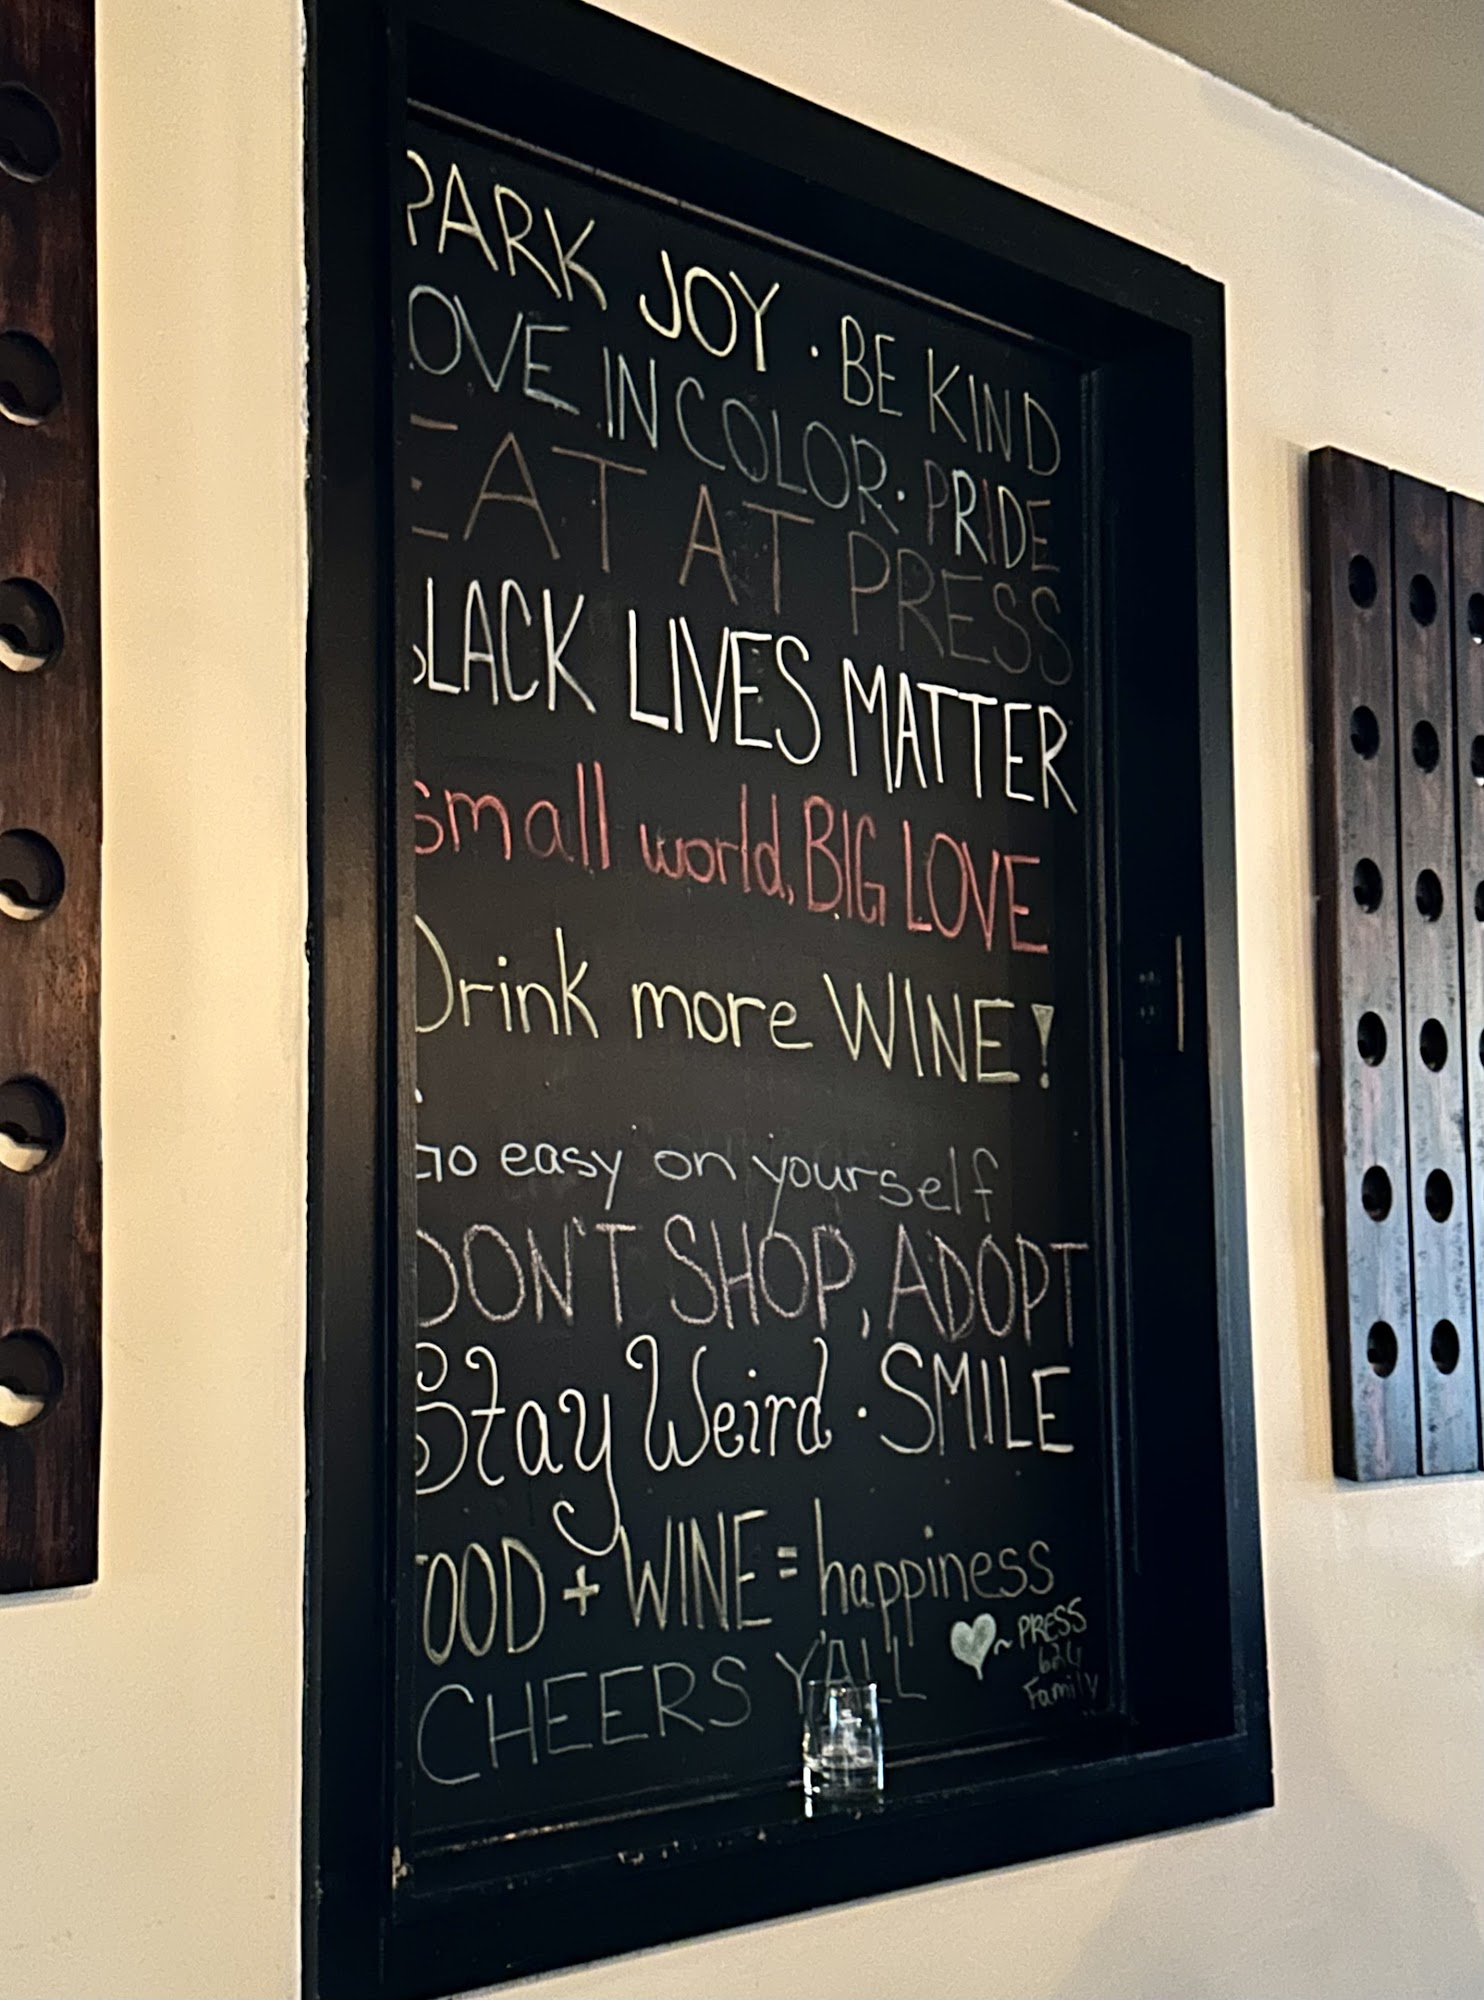 PARK JOY · BE KIND
OVE IN COLOR · PRIDE
EAT AT PRESS
BLACK LIVES MATTER
small world, BIG LOVE
Drink more WINE!
Go easy on yourself
DON'T SHOP, ADOPT
Stay Weird · SMILE
FOOD + WINE = happiness
CHEERS Y'ALL
♥~ PRESS
624
Family